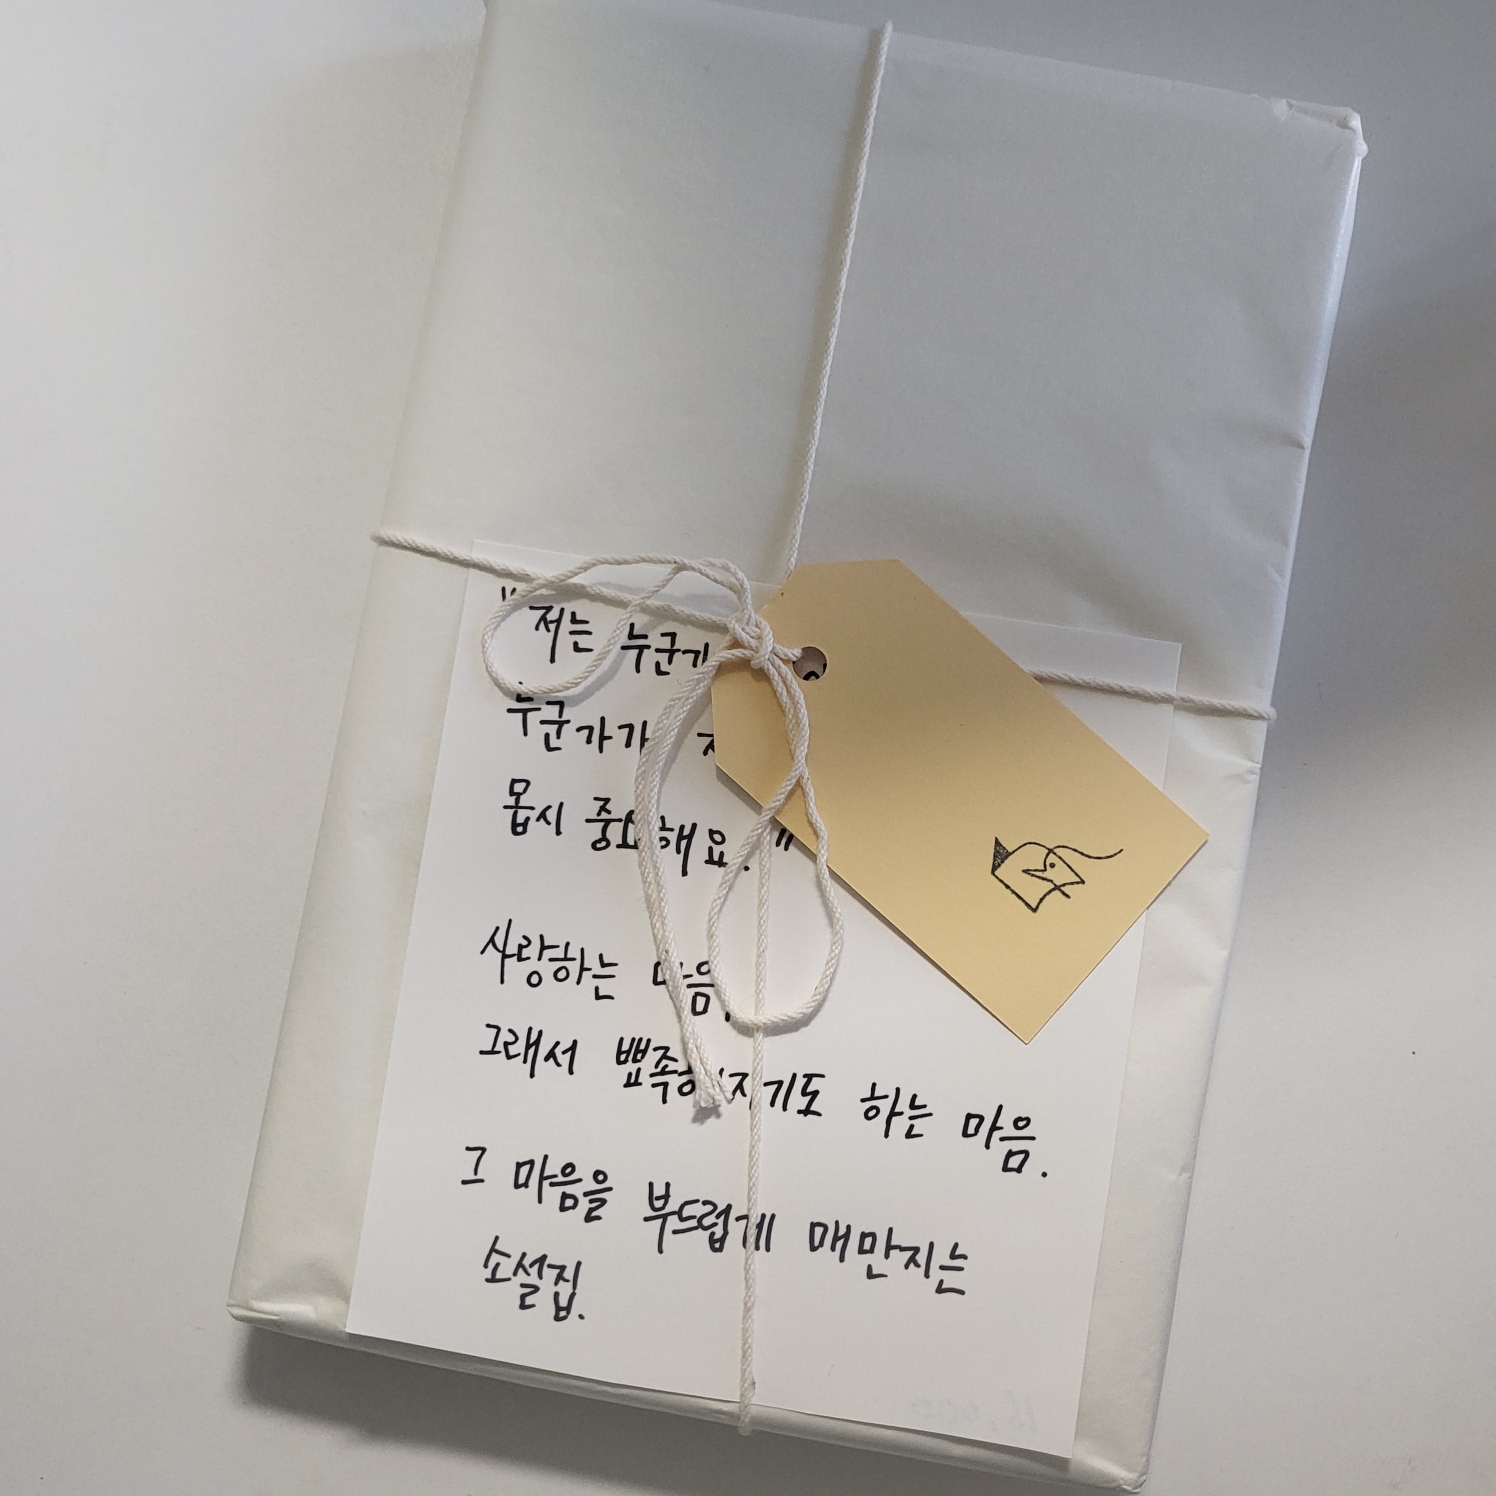 "저는
누군가가
몹시 중요해요."
사랑하는 마음,
그래서 뾰족해지기도 하는 마음.
그 마음을 부드럽게 매만지는
소설집.